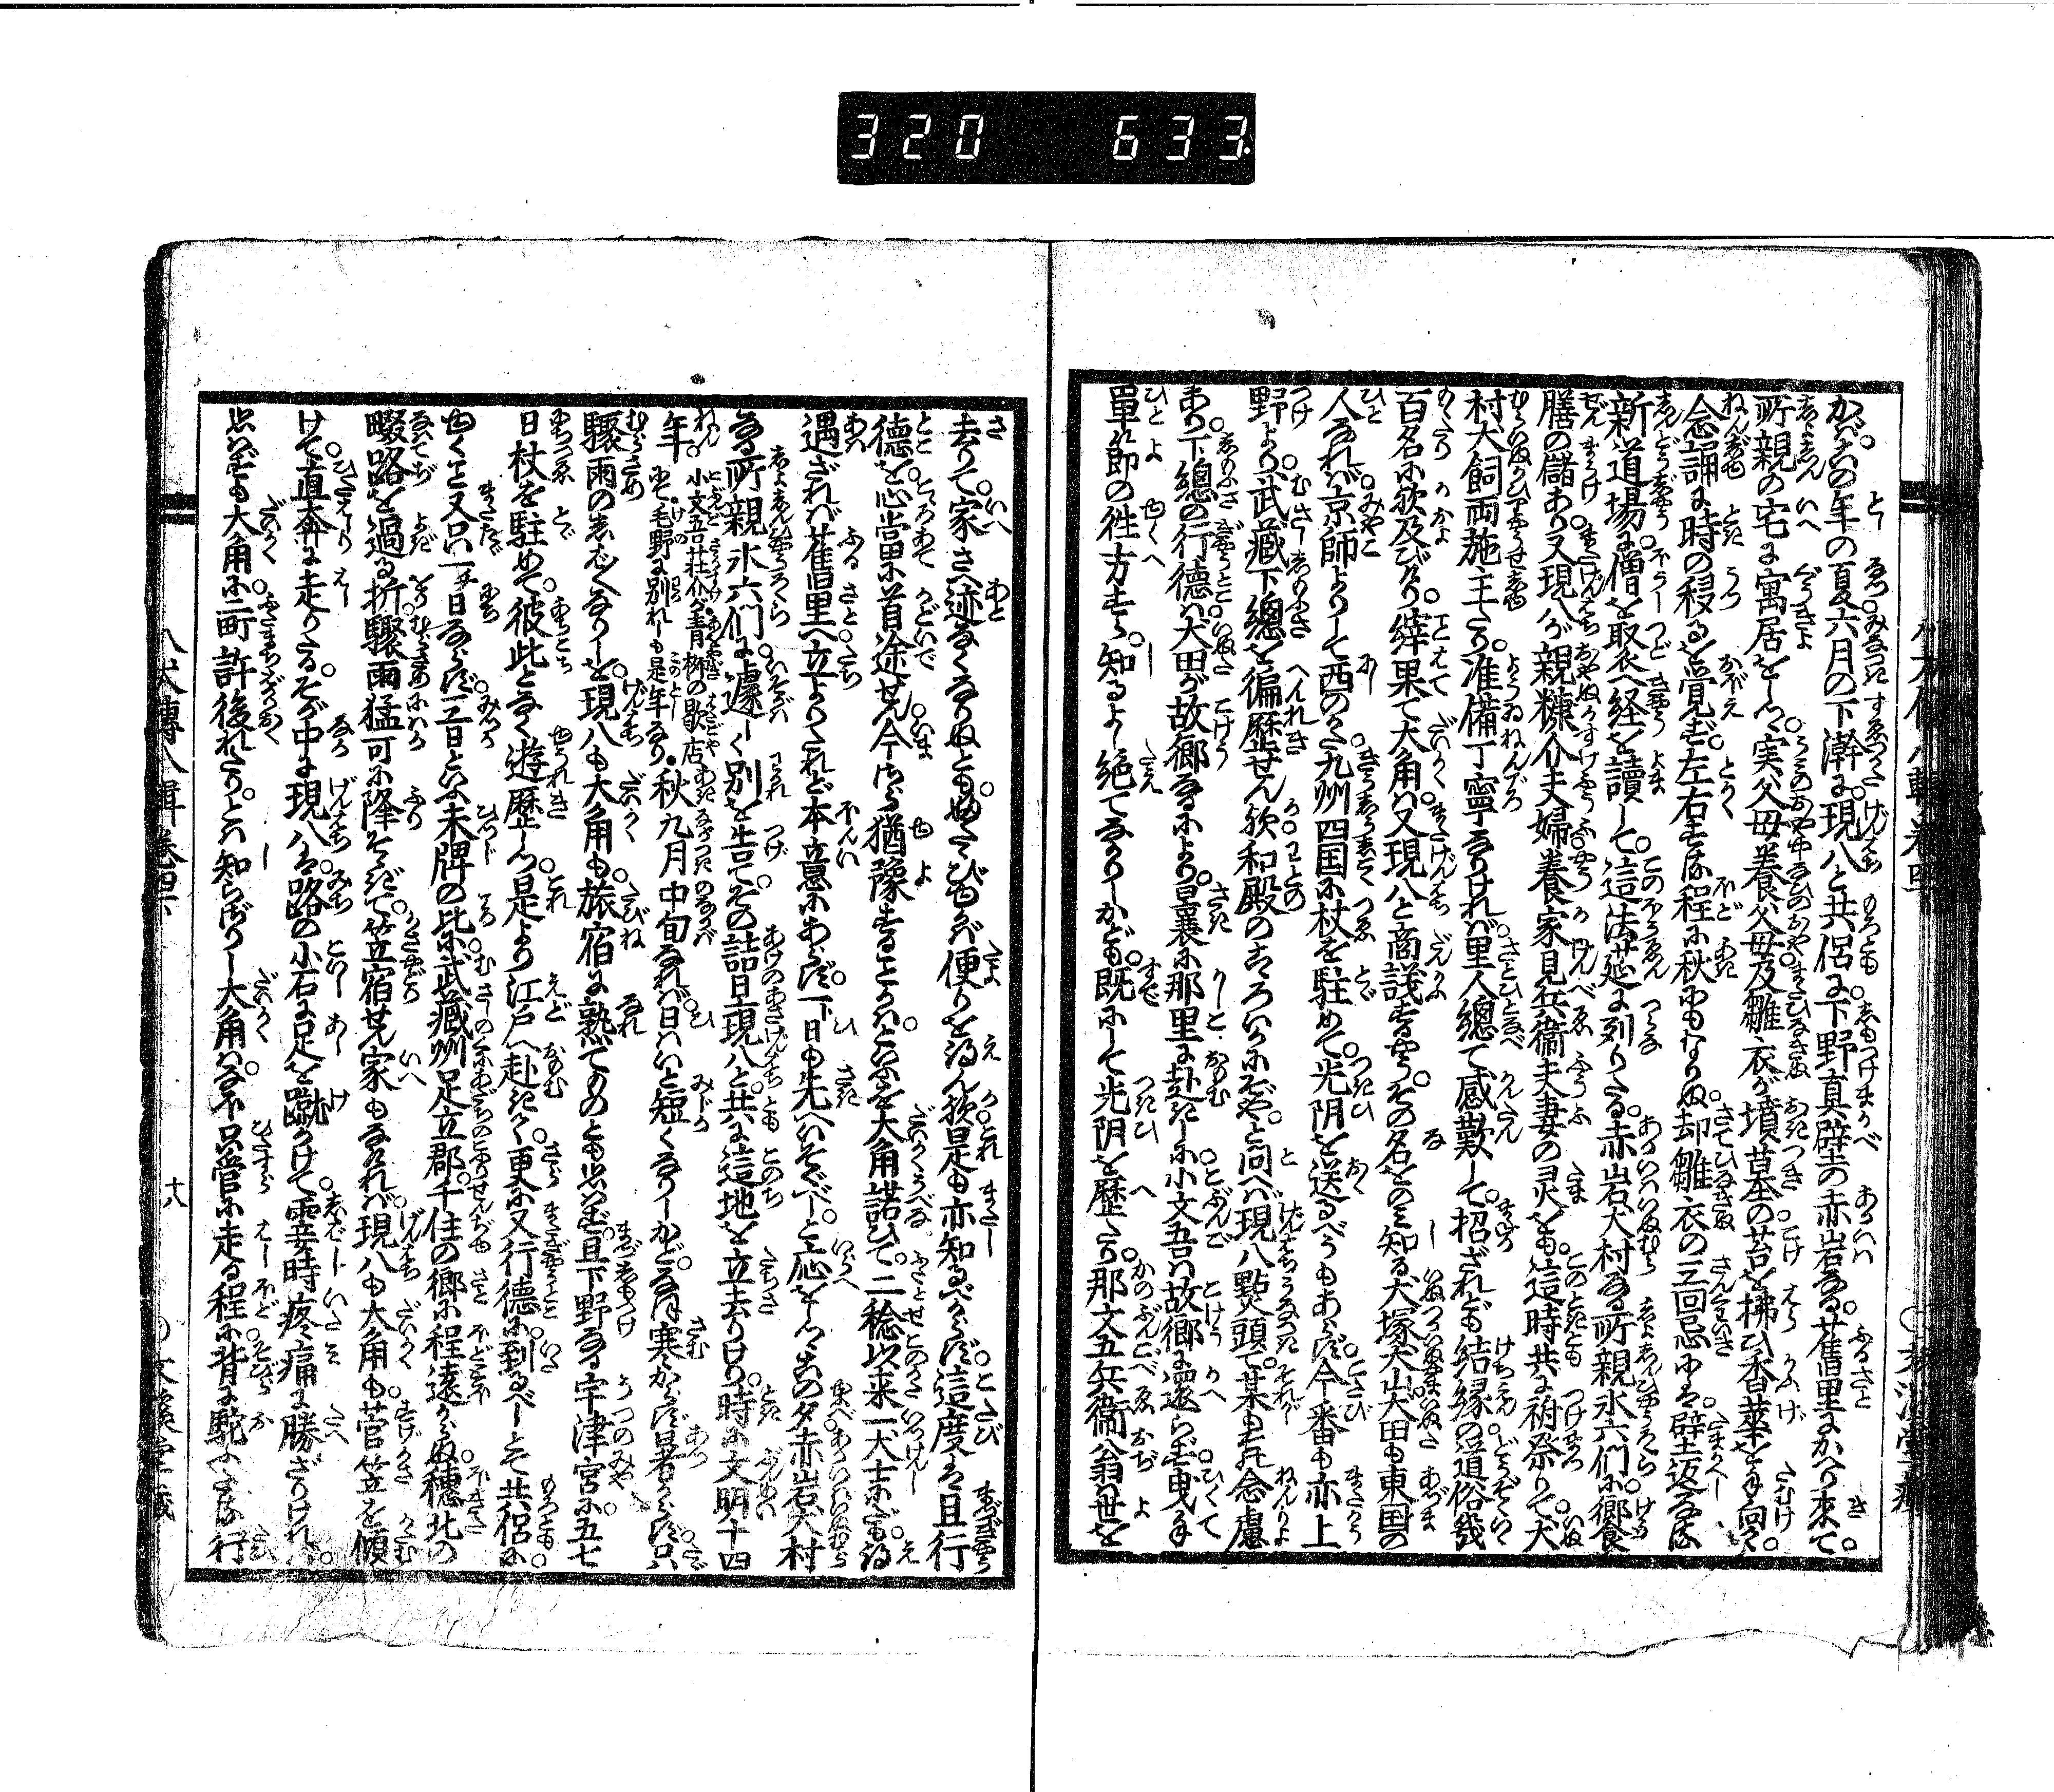 320 633
かば、その年の夏六月の下澣に、現八と共侶に、下野真壁の赤岩なる、舊里にかへり来て、
所親の宅に寓居をしつ、実父母養父母、及雛衣が墳墓の苔を拂ひ、香華を手向く、
念誦に時の移るを覚ず、左右する程に秋にもなりぬ、却雛衣の三回忌には、辟返なる
新道場に僧を聚へ、経を讀して、這法莚に列りたる、赤岩犬村なる所親氷六們に、饗食
膳の儲あり、又現八が親糠介夫婦、養家見兵衛夫妻の灵をも、這時共に祔祭りて、犬
村犬飼両施主たり、准備丁寧なりければ、里人總て感歎して、招ざれども結縁の道俗幾
百名に欲及びけり、縡果て大角は又現八と商議するやう、その名をのみ知る犬塚犬山犬田も東国の
人なれば、京師よりして西のかた、九州四国に杖を駐めて、光陰を送るべうもあらず、今番も亦上
野より、武藏下總を徧歴せん欤、和殿のこゝろいかにぞや、と問へば現八點頭て、某も其念慮
あり、下總の行德は、犬田が故郷なるにより、曩に那里に赴きしに、小文吾は故郷に還らず、曳手
單節の徃方すら、知るよし絶てなかりしかども、既にして光陰を歴たり、那文五兵衛翁は世を
八犬傳八輯卷四下
去りて、家さへ迹なくなりぬとも、ふたゝびゆかば便りを得ん欤、是も亦知るべからず、這度は且行
德を心當に首途せん、今はしも猶豫することかは、といふを大角諾ひて、二稔以来一犬士にだも得
遇ざれば、舊里へ立よりたれど、本意にあらず、一日も先へいそぐべし、と應をしつゝその夕、赤岩犬村
なる所親氷六們に、遽しく別を告て、その詰旦現八と、共に這地を立去りけり、時に文明十四
年、小文吾荘介が、青柳の歇店にて、毛野に別れしも是年なり、秋九月中旬なれば、日はいと短くなりしかど、なほ寒からず暑からず、只
驟雨のしば〳〵なりしを、現八も大角も、旅宿に熟てものとも思はず、且下野なる宇津宮に、五七
日杖を駐めて、彼此となく遊歴しつ、是より江戸へ赴きて、更に又行德に到るべしとて、共侶に
ゆくこと又只一日ならず、三日といふ未牌の比に、武藏州足立郡、千住の郷に程遠からぬ、穗北の
畷路を過る折、驟雨猛可に降そゝぎて、笠宿せん家もなければ、現八も大角も、菅笠を傾
けて、直奔に走りたる、そが中に現八は、路の小石に足を蹴かけて、霎時疼痛に勝ざりければ、
思はずも大角に、二町許後れたり、とは知らざりし大角は、なほ只管に走る程に、背に駝ふたる行
十八